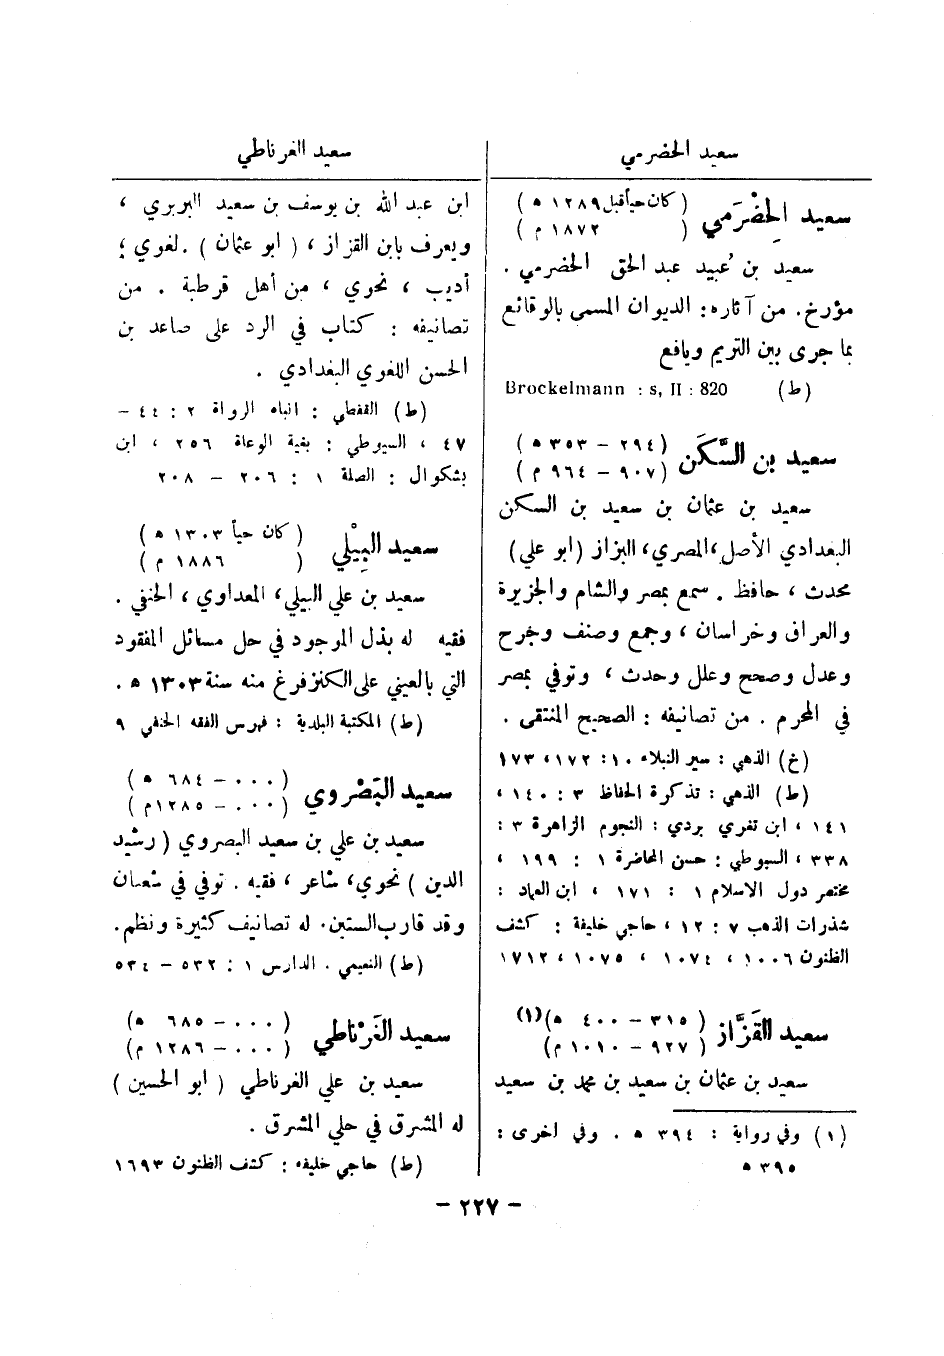 سعيد الحضرمي
سعيد الحِضْرَمي ( كان حياً قبل ١٢٨٩ ه )
( ١٨٧٢ م )
سعيد بن عُبيد عبد الحق الحضرمي .
مؤرخ. من آثاره: الديوان المسمى بالوقائع
بما جرى بين التريم ويافع
(ط) Brockelmann : s, II : 820
سعيد بن السَّكَن ( ٢٩٤ – ٣٥٣ ه )
( ٩٠٧ – ٩٦٤ م )
سعيد بن عثمان بن سعيد بن السكن
البغدادي الأصل، المصري، البزاز (ابو علي)
محدث ، حافظ . سمع بمصر والشام والجزيرة
والعراق وخراسان ، وجمع وصنف وجرح
وعدل وصحح وعلل وحدث ، وتوفي بمصر
في المحرم . من تصانيفه : الصحيح المنتقى .
(خ) الذهبي : سير النبلاء ١٠: ١٧٢، ١٧٣
(ط) الذهبي : تذكرة الحفاظ ٣ : ١٤٠ ،
١٤١ ، ابن تغري بردي : النجوم الزاهرة ٣ :
٣٣٨ ، السيوطي : حسن المحاضرة ١ : ١٩٩ ،
مختصر دول الاسلام ١ : ١٧١ ، ابن العماد :
شذرات الذهب ٧ : ١٢ ، حاجي خليفة : كشف
الظنون ١٠٠٦ ، ١٠٧٤ ، ١٠٧٥ ، ١٧١٢
سعيد القَزَّاز ( ٣١٥ – ٤٠٠ ه)(١)
( ٩٢٧ – ١٠١٠ م)
سعيد بن عثمان بن سعيد بن محمد بن سعيد
(١) وفي رواية : ٣٩٤ ه . وفي اخرى :
٣٩٥ ه
سعيد الغرناطي
ابن عبد الله بن يوسف بن سعيد البربري ،
ويعرف بابن القزاز ، ( ابو عثمان ) . لغوي ؛
أديب ، نحوي ، من أهل قرطبة . من
تصانيفه : كتاب في الرد على صاعد بن
الحسن اللغوي البغدادي .
(ط) القفطي : انباه الرواة ٢ : ٤٤ –
٤٧ ، السيوطي : بغية الوعاة ٢٥٦ ، ابن
بشكوال : الصلة ١ : ٢٠٦ – ٢٠٨
سعيد البِيْلي ( كان حياً ١٣٠٣ ه )
( ١٨٨٦ م )
سعيد بن علي البيلي، المعداوي ، الحنفي .
فقيه له بذل الموجود في حل مسائل المفقود
التي بالعيني على الكنز فرغ منه سنة ١٣٠٣ ه .
(ط) المكتبة البلدية : فهرس الفقه الحنفي ٩
سعيد البَصْروي ( ٠٠٠ – ٦٨٤ ه )
( ٠٠٠ – ١٢٨٥م )
سعيد بن علي بن سعيد البصروي ( رشيد
الدين ) نحوي، شاعر ، فقيه . توفي في شعبان
وقد قارب الستين. له تصانيف كثيرة ونظم.
(ط) النعيمي . الدارس ١ : ٥٣٢ – ٥٣٤
سعيد الغَرْناطي ( ٠٠٠ – ٦٨٥ ه)
( ٠٠٠ – ١٢٨٦ م)
سعيد بن علي الغرناطي ( ابو الحسين )
له المشرق في حلي المشرق .
(ط) حاجي خليفه : كشف الظنون ١٦٩٣
– ٢٢٧ –